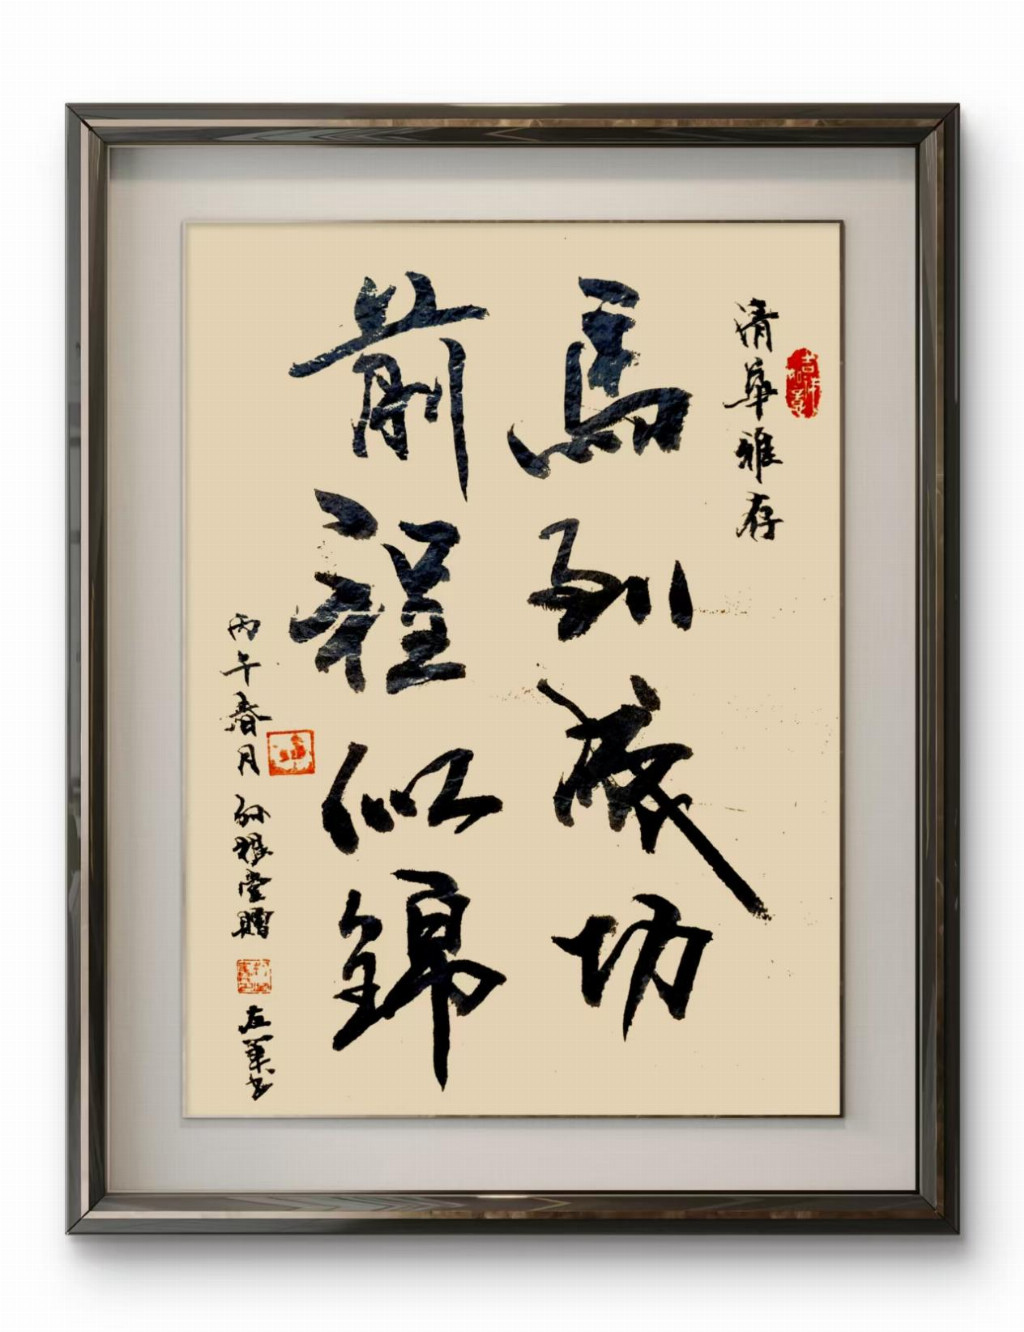 清華雅存
馬到成功
前程似錦
丙午春月
堂贈
左筆書